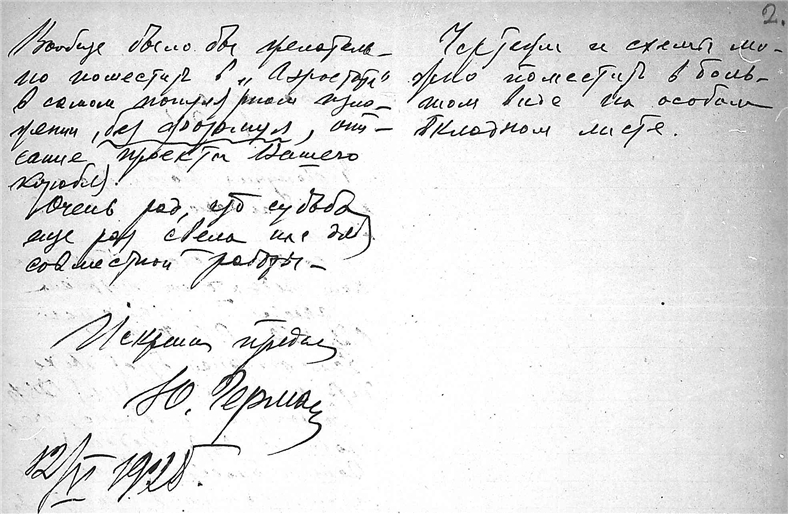 2.
Вообще было бы желатель-
но поместить в „Аэростат"
в самом популярном изло-
жении, без формул, опи-
сание проекта Вашего
корабля.
Очень рад, что судьба
еще раз свела нас для
совместной работы –
Искренно предан
Ю. Герман
12/VI 1925.
Чертежи и схемы мо-
жно поместить в боль-
шом виде на особом
вкладном листе.